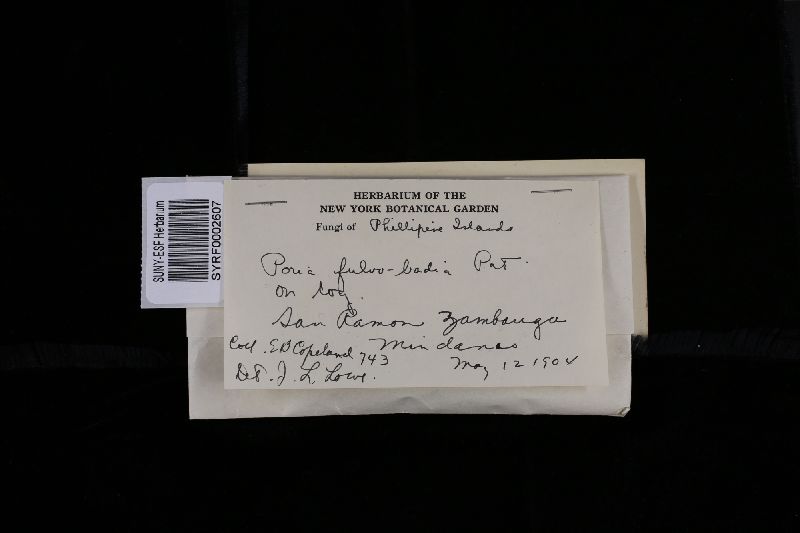 HERBARIUM OF THE
NEW YORK BOTANICAL GARDEN
Fungi of Phillipine Islands
Poria fulvo-badia Pat.
on log.
San Ramon Zambanga
Mindanao
Coll. E B Copeland 743
May 12 1904
Det. J. L. Lowe.
SUNY-ESF Herbarium
SYRF0002607